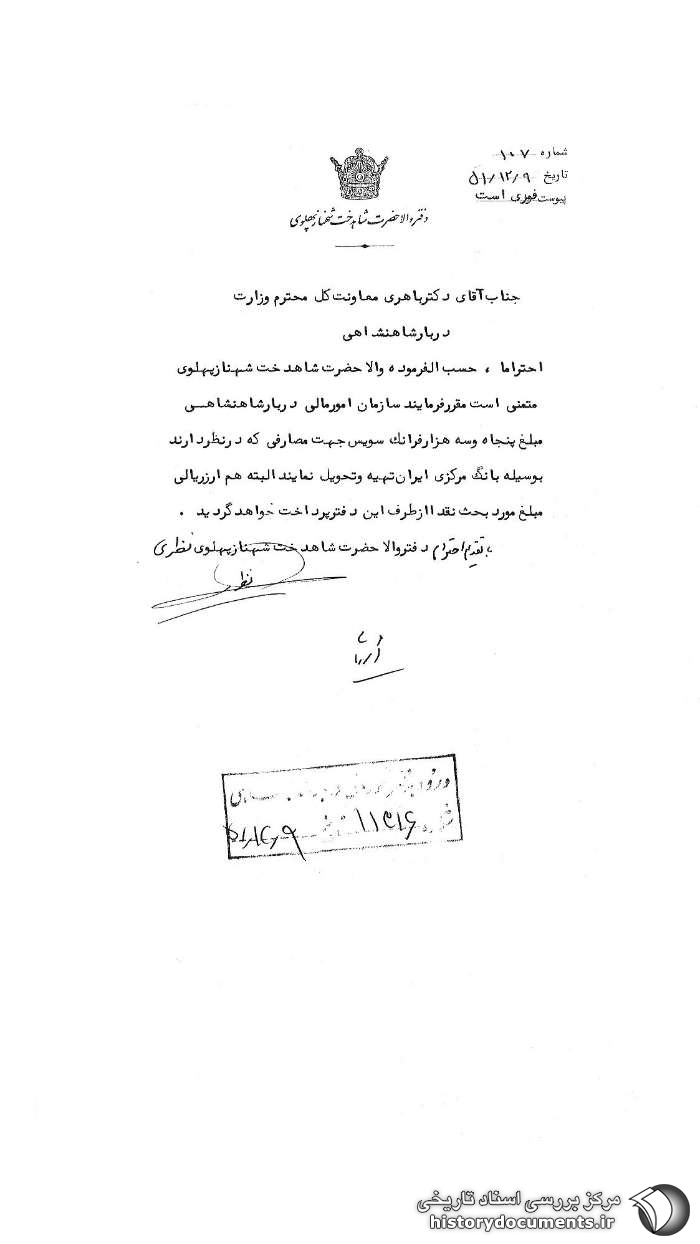 شماره ۱۰۷
تاریخ ۵۱/۱۲/۹
پیوست فوری است
دفتر والاحضرت شاهدخت شهناز پهلوی
جناب آقای دکتر باهری معاونت کل محترم وزارت
دربار شاهنشاهی
احتراما ، حسب الفرموده والا حضرت شاهدخت شهناز پهلوی
متمنی است مقرر فرمایند سازمان امور مالی دربار شاهنشاهی
مبلغ پنجاه وسه هزار فرانك سویس جهت مصارفی که در نظر دارند
بوسیله بانگ مرکزی ایران تهیه وتحویل نمایند البته هم ارز ریالی
مبلغ مورد بحث نقدا از طرف این دفتر پرداخت خواهد گردید .
با تقدیم احترام دفتر والا حضرت شاهدخت شهناز پهلوی نظری
ورود بدفتر
۱۱۳۱۶
مرکز بررسی اسناد تاریخی
historydocuments.ir